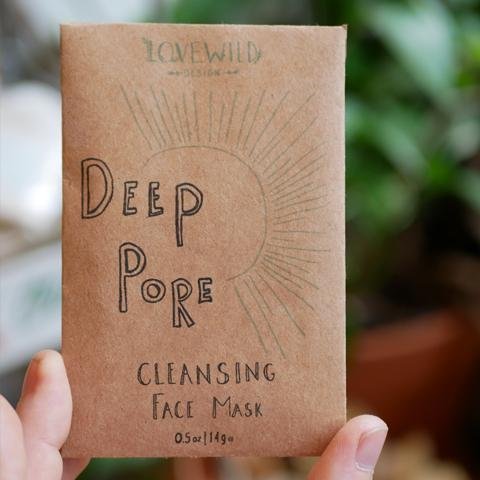 LOVEWILD
DESIGN
DEEP
PORE
CLEANSING
FACE MASK
0.5oz|14g